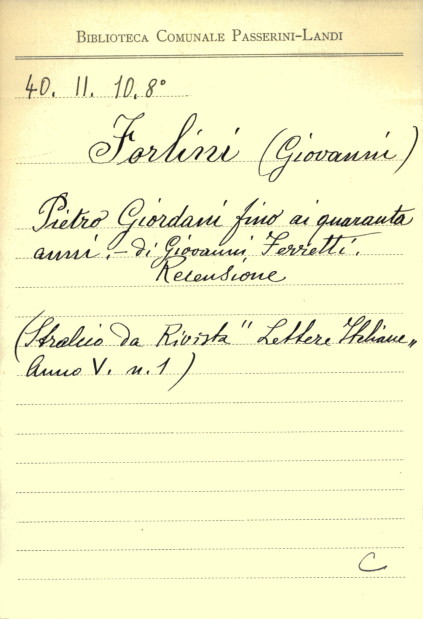 BIBLIOTECA COMUNALE PASSERINI-LANDI
40. II. 10. 8°
Forlini (Giovanni)
Pietro Giordani fino ai quaranta
anni. - di Giovanni Ferretti.
Recensione
(Stralcio da Rivista " Lettere Italiane „
Anno V. n. 1)
C